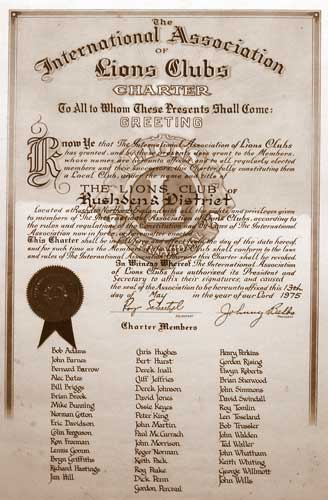 The
International Association
OF
Lions Clubs
CHARTER
To All to Whom These Presents Shall Come:
GREETING
Know Ye that The International Association of Lions Clubs
has granted, and by these presents does grant to the Members,
whose names are hereunto affixed, and to all regularly elected
members and their successors, this charter fully constituting them
a Local Club, under the name and title of
THE LIONS CLUB OF
Rushden & District
Located at
and privileges given
to members of The International Association of Lions Clubs, according to
the rules and regulations of The International
Association now in force or
This Charter shall be the day of the date hereof,
and for such time as shall conform to the laws
and rules of The International Association this Charter shall be revoked.
In Witness Whereof The International Association
of Lions Clubs has authorized its President and
Secretary to affix their signatures, and caused
the seal of the Association to be hereunto affixed this 13th
day of May in the year of our Lord 1975
Charter Members
Bob Adams
John Barnes
Bernard Barrow
Alec Bates
Bill Briggs
Brian Brook
Mike Bunning
Norman Cotton
Eric Davidson
Colin Ferguson
Ron Freeman
Lennie Gomm
Bryn Griffiths
Richard Hastings
Jim Hill
Chris Hughes
Bert Hurst
Derek Inall
Cliff Jeffries
Derek Johnson
David Jones
Ossie Keyes
Peter King
John Martin
Paul McCurrach
John Morrison
Roger Norman
Keith Pack
Reg Rake
Dick Renn
Gordon Percival
Henry Perkins
Gordon Rising
Elwyn Roberts
Brian Sherwood
John Simmons
David Swindall
Reg Tomlin
Len Toseland
Bob Trussler
John Walden
Ted Waller
John Whatham
Keith Whiting
George Willmott
John Wills